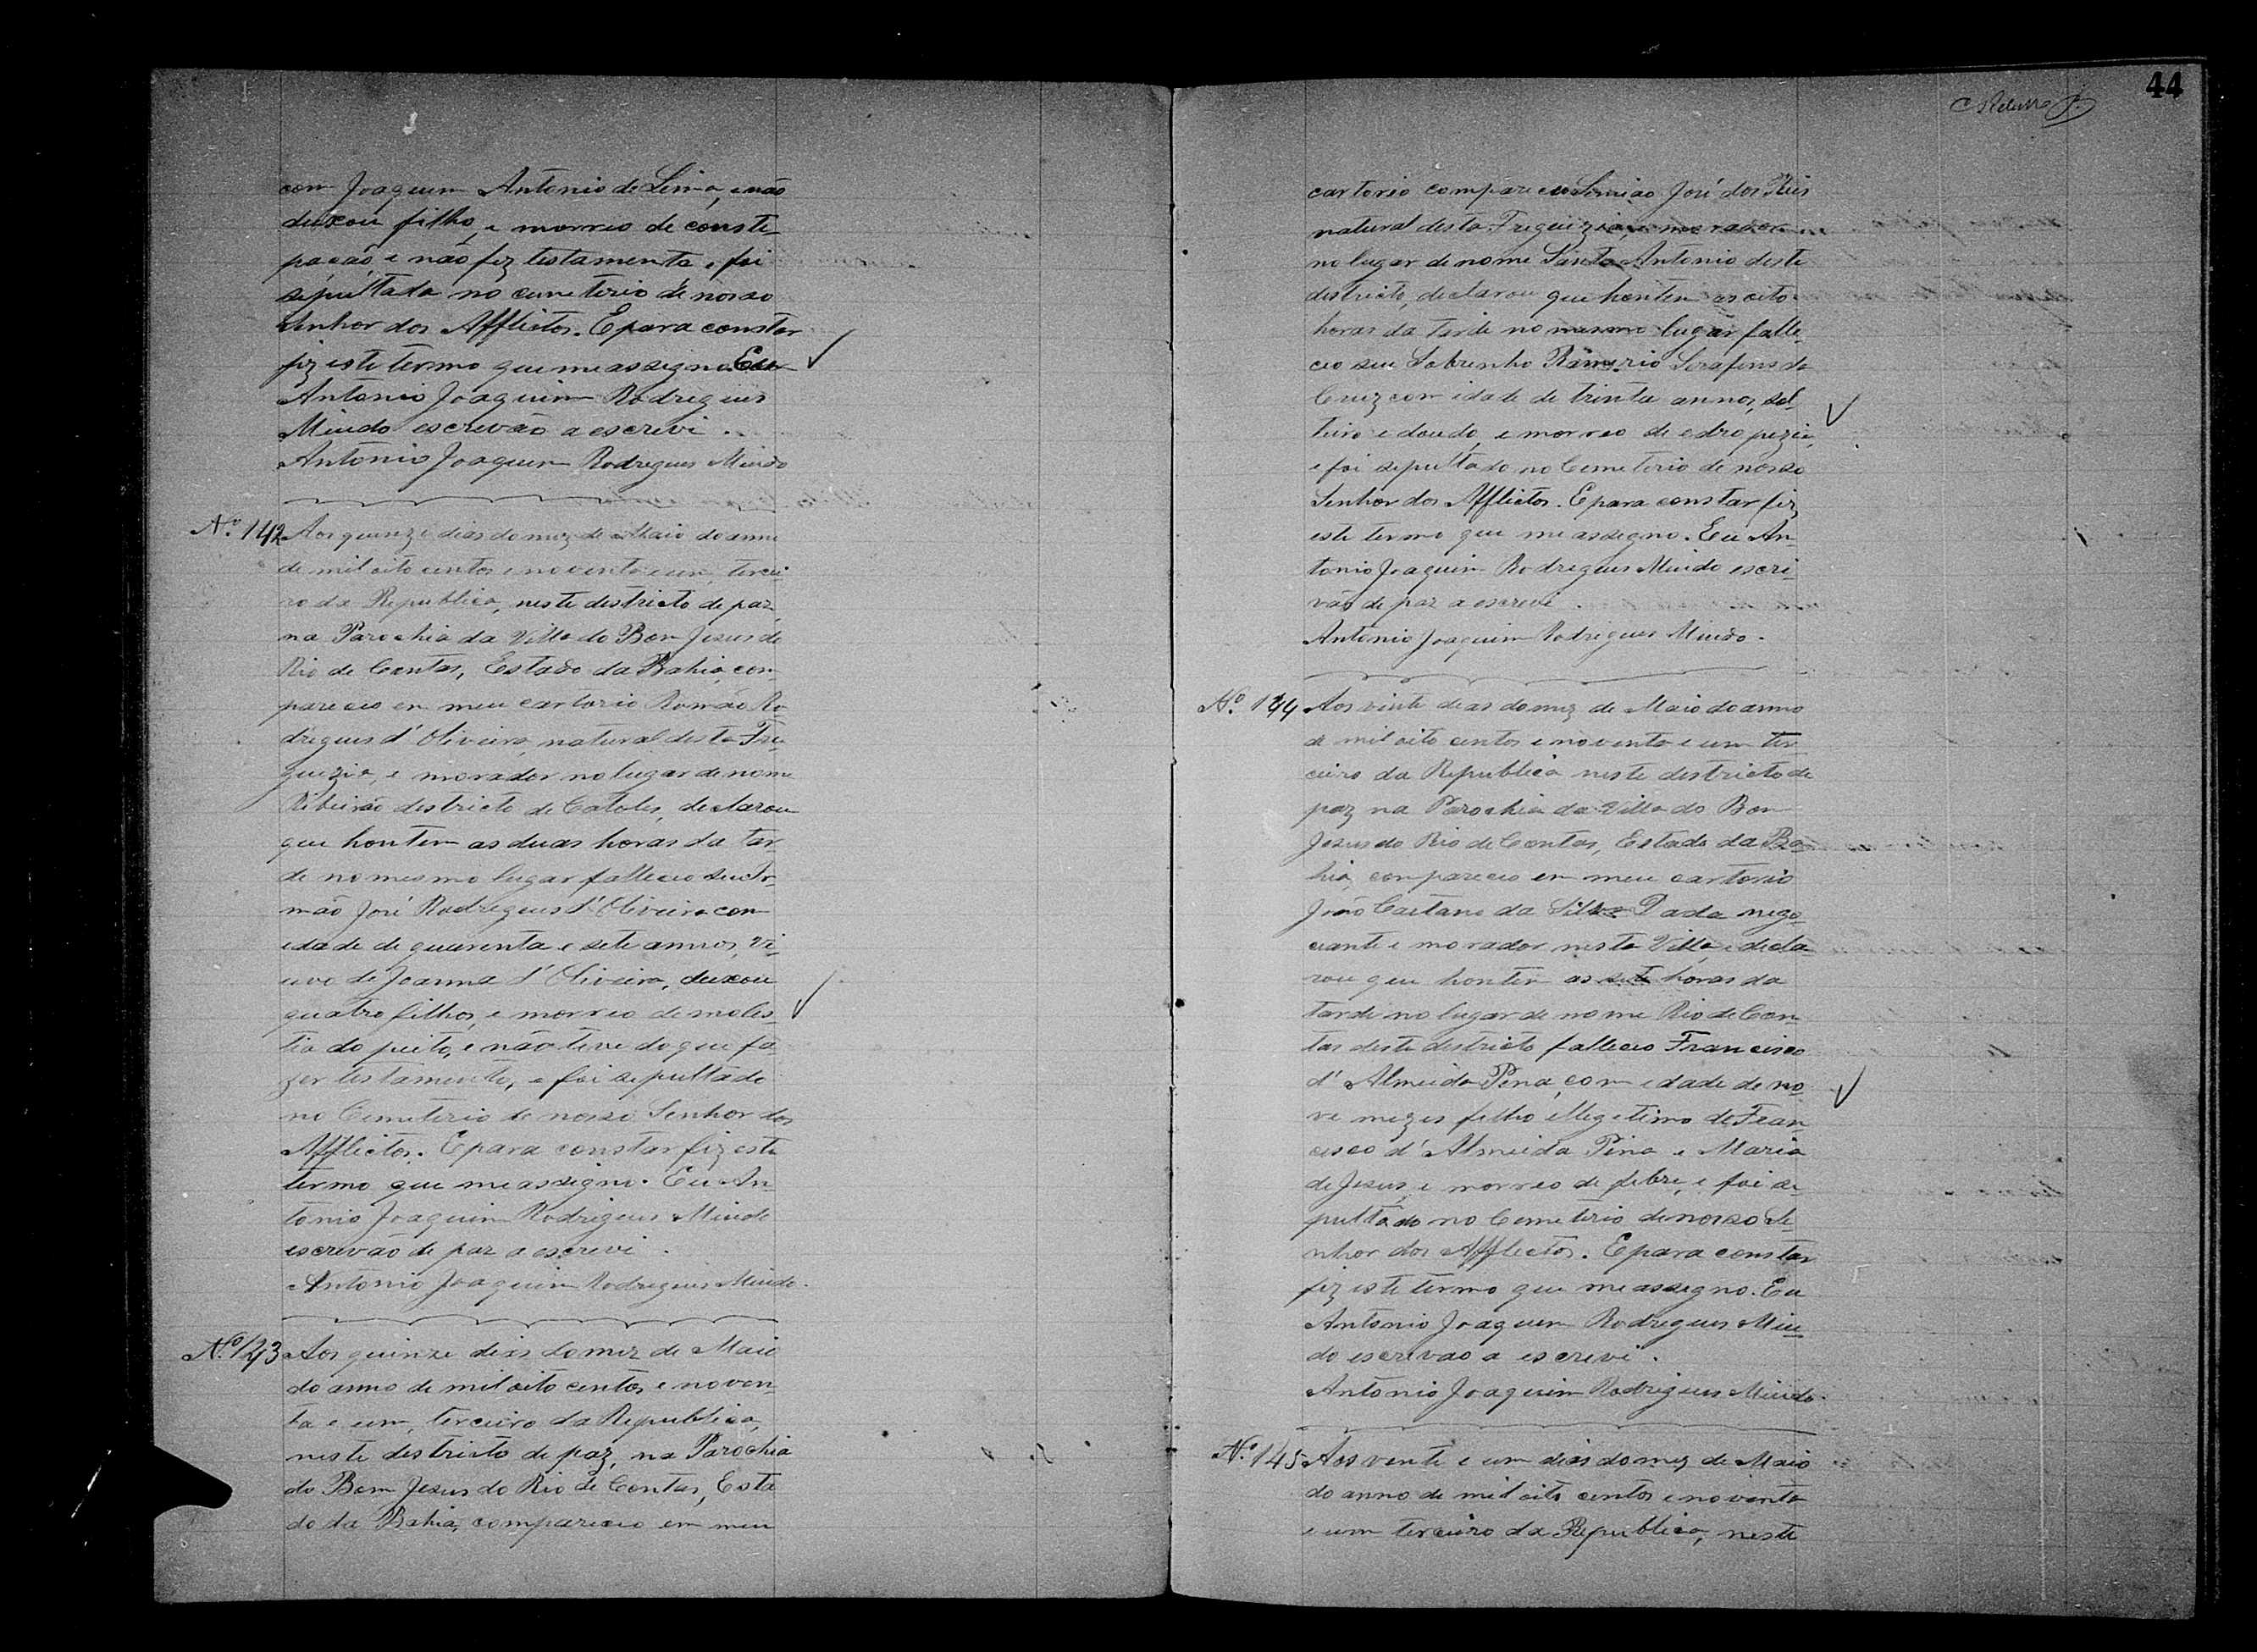 com Joaquim Antonio de Lima, e não
deixou filho, e morreo de consti-
pação e não fez testamento e foi
sepultada no cemeterio de nosso
Senhor dos Afflictos. E para constar
fiz este termo que me assigno. Eu
Antonio Joaquim Rodrigues
Miudo escrevão a escrevi.
Antonio Joaquim Rodrigues Miudo
Nº 142 Aos quinze dias do mez de Maio do anno
de mil oito centos e noventa e um, tercei-
ro da Republica, neste destricto de paz,
na Parochia da Villa do Bom Jesus do
Rio de Contas, Estado da Bahia, com-
pareceo em meu cartorio Romão Ro-
drigues d'Oliveira, natural desta Fre-
guezia, e morador no lugar de nome
Ribeirão destricto de Catoles, declarou
que hontem as duas horas da tar-
de no mesmo lugar falleceo seu Ir-
mão José Rodrigues d'Oliveira com
idade de quarenta e sete annos, vi-
uvo de Joanna d'Oliveira, deixou
quatro filhos, e morreo de moles-
tia do peito, e não teve do que fa-
zer testamento, e foi sepultado
no Cemeterio de nosso Senhor dos
Afflictos. E para constar fiz este
termo que me assigno. Eu An-
tonio Joaquim Rodrigues Miudo
escrevão de paz a escrevi.
Antonio Joaquim Rodrigues Miudo.
Nº 143 Aos quinze dias do mez de Maio
do anno de mil oito centos e noven-
ta e um, terceiro da Republica,
neste destricto de paz, na Parochia
do Bom Jesus do Rio de Contas, Esta
do da Bahia, compareceo em meu
44
cartorio compareceo Simião José dos Reis
natural desta Freguezia, e morador
no lugar de nome Santo Antonio deste
destricto, declarou que hontem as oito
horas da tarde no mesmo lugar falle-
ceo seu Sobrinho Serafim da
Cruz com idade de trinta annos, sol-
teiro e doudo, e morreo de edropezia,
e foi sepultado no Cemeterio de nosso
Senhor dos Afflictos. E para constar fiz
este termo que me assigno. Eu An-
tonio Joaquim Rodrigues Miudo escri-
vão de paz a escrevi.
Antonio Joaquim Rodrigues Miudo.
Nº 144 Aos vinte dias do mez de Maio do anno
de mil oito centos e noventa e um ter
ceiro da Republica neste destricto de
paz na Parochia da Villa do Bom
Jesus do Rio de Contas, Estado da Ba-
hia, compareceo em meu cartorio
João Caetano da Silva nego-
ciante e morador nesta Villa, e decla-
rou que hontem as sete horas da
tarde no lugar de nome Rio de Con-
tas deste destricto falleceo Francisco
d'Almeida Pina, com edade de no-
ve mezes filho illegetimo de Fran-
cisco d'Almeida Pina e Maria
de Jesus, e morreo de febre, e foi se-
pultado no Cemeterio de nosso Se-
nhor dos Afflictos. E para constar
fiz este termo que me assegno. Eu
Antonio Joaquim Rodrigues Miu-
do escrevao a escrevi.
Antonio Joaquim Rodrigues Miudo.
Nº 145 Aos vente e um dias do mez de Maio
do anno de mil oito centos e noventa
e um terceiro da Republica, neste